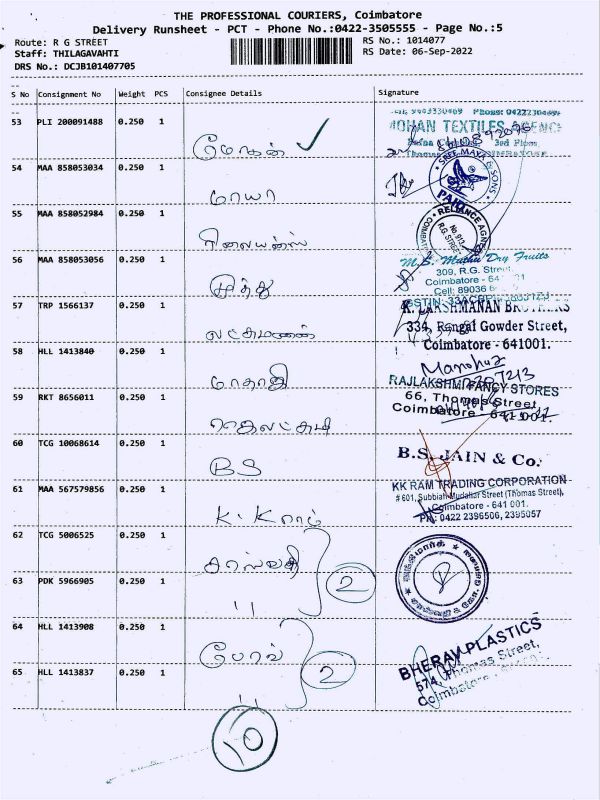 THE PROFESSIONAL COURIERS, Coimbatore
Delivery Runsheet - PCT - Phone No.:0422-3505555 - Page No.:5
Route: R G STREET
RS No.: 1014077
Staff: THILAGAVAHTI
RS Date: 06-Sep-2022
DRS No.: DCJB101407705
S No Consignment No Weight PCS Consignee Details Signature
53 PLI 200091488 0.250 1
மோகன்
MOHAN TEXTILES AGENCY
3rd Floor
54 MAA 858053034 0.250 1
மாயா
SREE MAYA & SONS
PAID
55 MAA 858052984 0.250 1
ரிலையன்ஸ்
RELIANCE AGENC
No 913
R.G. STREET
COIMBAT
56 MAA 858053056 0.250 1
முத்து
M.S. Muthu Dry Fruits
309, R.G. Street
Coimbatore - 64
Cell: 89036
57 TRP 1566137 0.250 1
லட்சுமணன்
K. LAKSHMANAN BROTHERS
334, Rangai Gowder Street,
Coimbatore - 641001.
58 HLL 1413840 0.250 1
மாதாஜி
Manohar
59 RKT 8656011 0.250 1
ராஜலட்சுமி
RAJLAKSHMI FANCY STORES
66, Thomas Street
Coimbatore - 641 001.
60 TCG 10068614 0.250 1
BS
B.S. JAIN & Co.
61 MAA 567579856 0.250 1
K.K ராம்
KK RAM TRADING CORPORATION
#601, Subbiah Mudaliar Street (Thomas Street),
Coimbatore - 641 001.
PH: 0422 2396506, 2395057
62 TCG 5006525 0.250 1
சரஸ்வதி
2
63 PDK 5966905 0.250 1
"
64 HLL 1413908 0.250 1
பேரவ்
2
BHERAV PLASTICS
574, Thomas Street,
Coimbatore
65 HLL 1413837 0.250 1
"
10